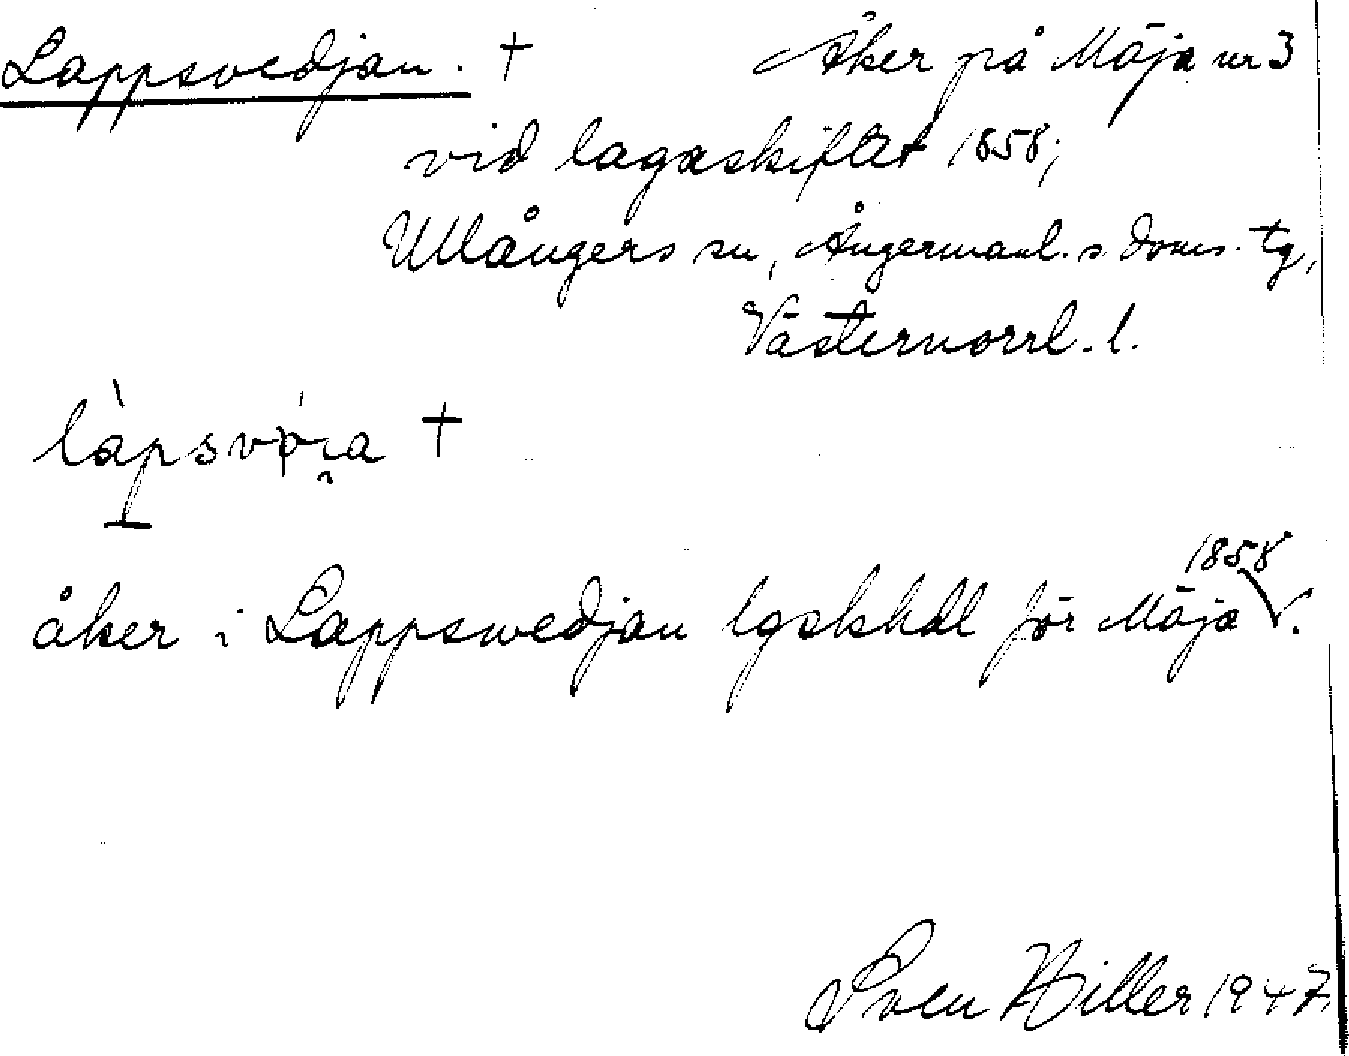 Lappsvedjan. † Åker på Mäja nr 3
vid lagaskiftet 1858;
Ullångers sn, Ångermanl. s. doms. tg,
Västernorrl. l.
†
åker i Lappswedjan lgskhdl för Mäja 1858.
Sven Hiller 1947